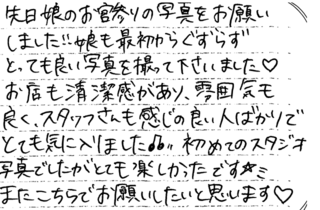 先日娘のお宮参りの写真をお願い
しました!!娘も最初からぐずらず
とっても良い写真を撮って下さいました♡
お店も清潔感があり、雰囲気も
良く、スタッフさんも感じの良い人ばかりで
とても気に入りました♫〃初めてのスタジオ
写真でしたがとても楽しかったです☆ミ
またこちらでお願いしたいと思います♡